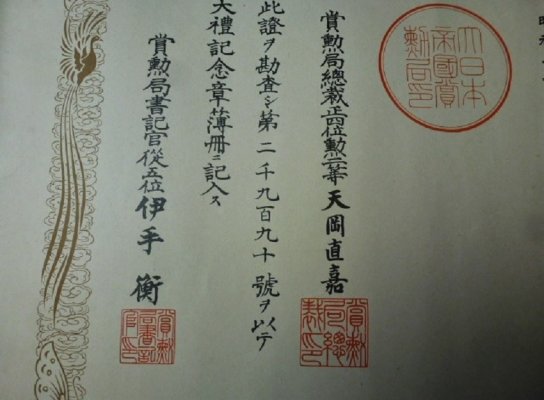 昭和
大日本
帝國賞
勲局印
賞勲局總裁正四位勲二等天岡直嘉
賞勲
局總
裁印
此證ヲ勘査シ第二千九百九十號ヲ以テ
大禮記念章簿冊ニ記入ス
賞勲局書記官從五位伊手衡
賞勲
局書記
官印